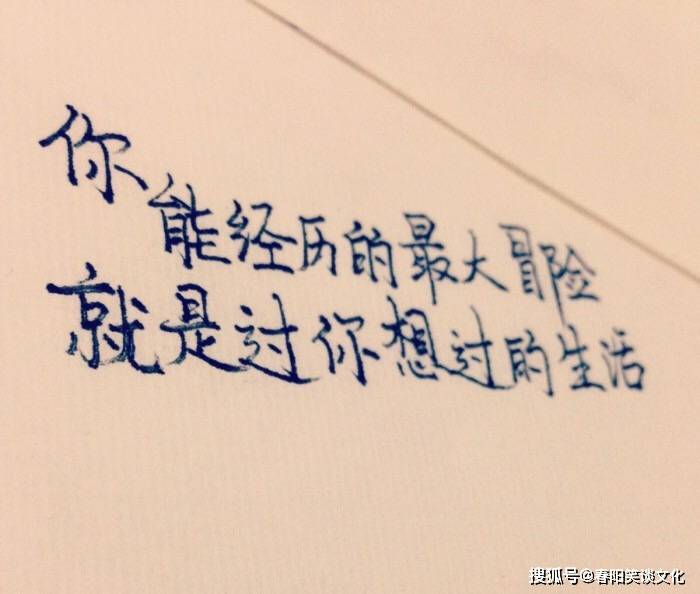 你
能经历的最大冒险
就是过你想过的生活
搜狐号@春阳笑谈文化